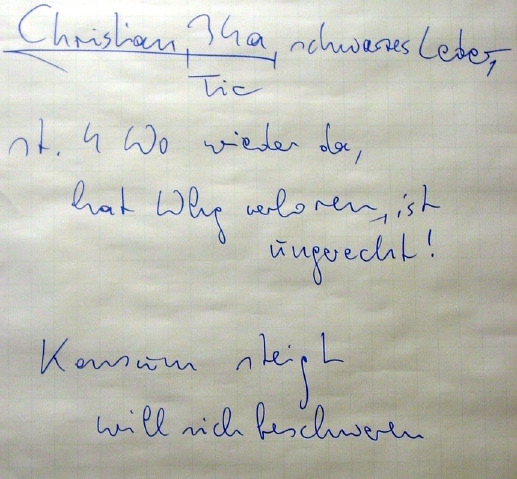 Christian, 34a, schwarzes Leder,
Tic
st. 4 Wo wieder da,
hat Whg verloren, ist
ungerecht!
Konsum steigt
will sich beschweren